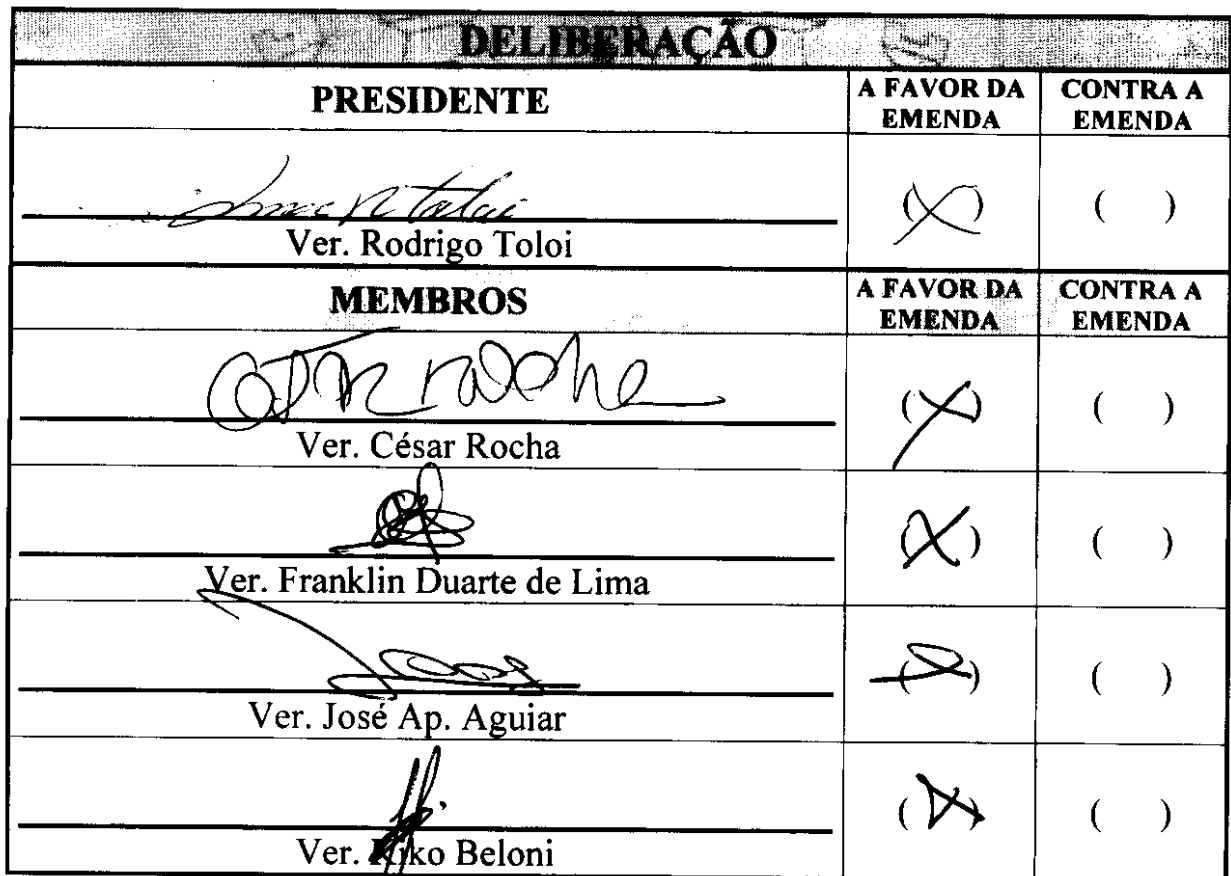 DELIBERAÇÃO
PRESIDENTE
A FAVOR DA
EMENDA
CONTRA A
EMENDA
( X )
( )
Ver. Rodrigo Toloi
MEMBROS
A FAVOR DA
EMENDA
CONTRA A
EMENDA
( X )
( )
Ver. César Rocha
( X )
( )
Ver. Franklin Duarte de Lima
( )
Ver. José Ap. Aguiar
( X )
( )
Ver. Kiko Beloni